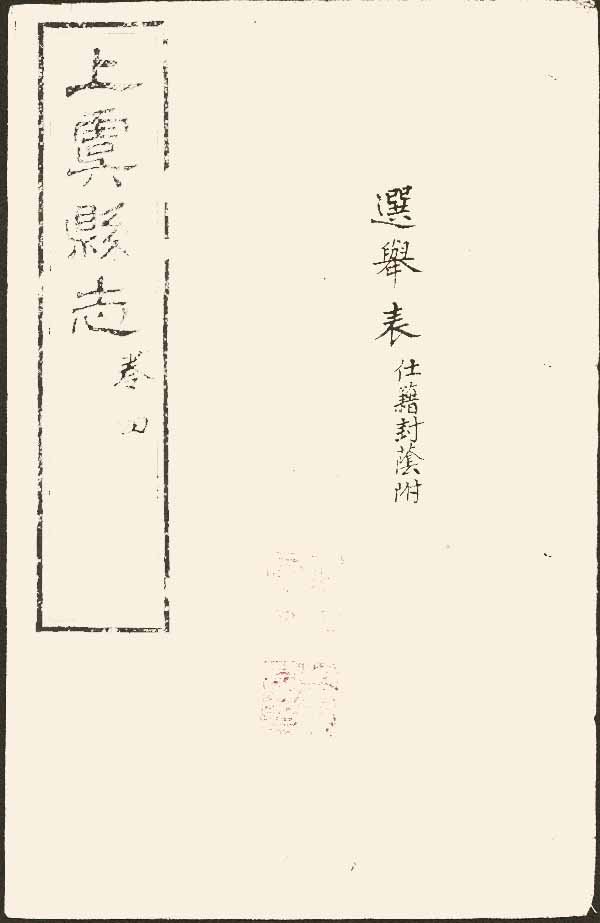 選舉表
仕籍封蔭附
上虞縣志
卷四